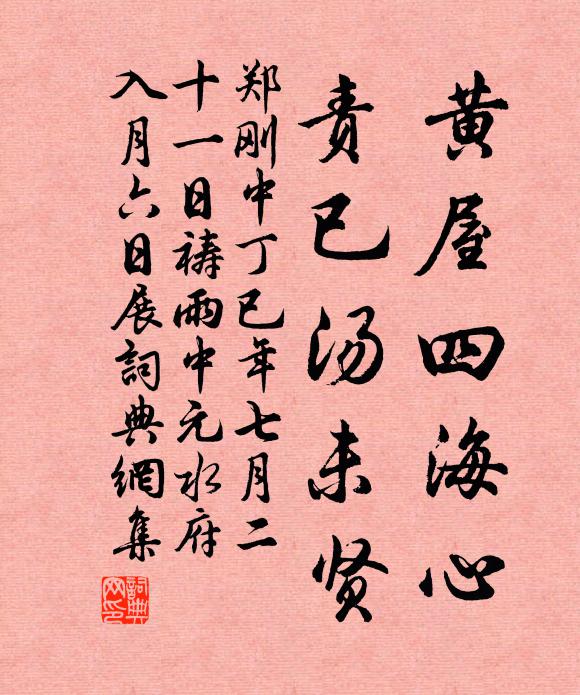 黄屋四海心
责已汤未贤
郑刚中丁巳年七月二
十一日祷雨中元水府
入月六日展詞典網集
詞典
网印